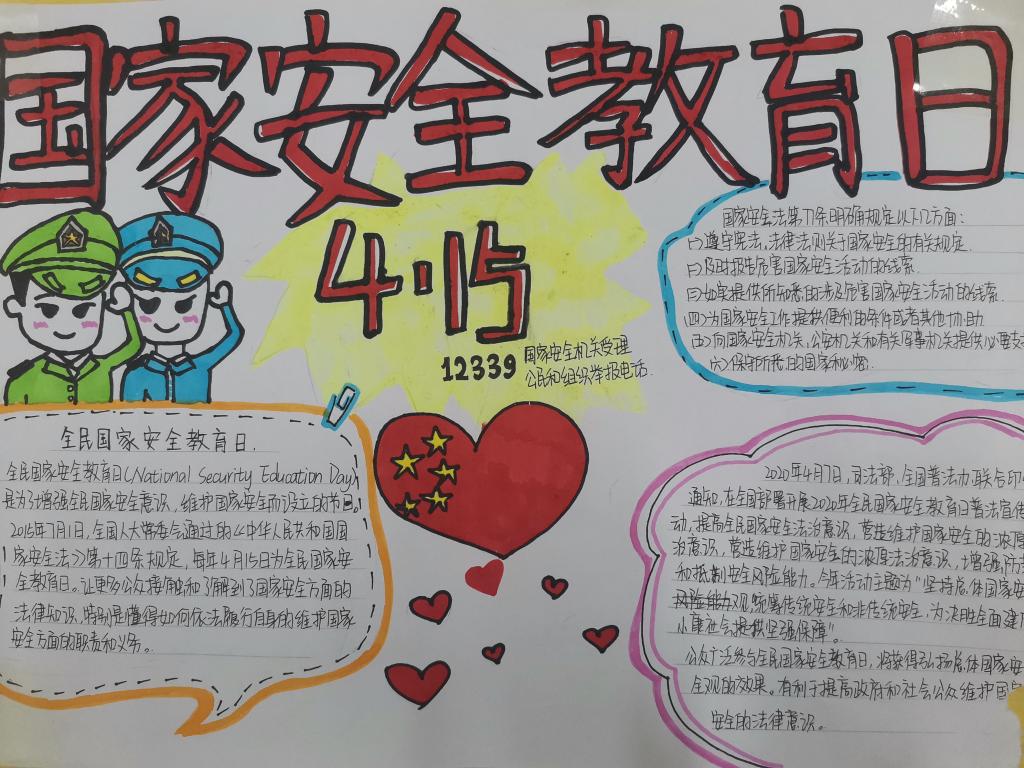 国家安全教育日
4·15
12339
国家安全机关受理
公民和组织举报电话.
国家安全法第77条明确规定以下几方面:
(一)遵守宪法,法律法则关于国家安全的有关规定.
(二)及时报告危害国家安全活动的线索.
(三)如实提供所知悉的涉及危害国家安全活动的线索.
(四)为国家安全工作提供便利由条件或者其他协助
(五)向国家安全机关,公安机关和有关军事机关提供必要支
(六)保守所悉的国家和必密.
全民国家安全教育日.
全民国家安全教育日(National Security Education Day)
是为了增强全民国家安全意识,维护国家安全而设立的节日。
2015年7月1日,全国人大常委会通过的《中华人民共和国国
家安全法》第十四条规定,每年4月15日为全民国家安
全教育日。让更多公众接触和了解到了国家安全方面的
法律知识,特别是懂得如何依法履行自身的维护国家
安全方面的职责和义务。
2020年4月7日,司法部,全国普法办联合印
通知,在全国部署开展2020年全民国家安全教育日普法宣传
动,提高全民国家安全法治意识,营造维护国家安全的浓厚
治意识,营造维护国家安全的浓厚法治意识,增强防
和抵制安全风险能力。今年活动主题为"坚持总体国家安
风险能力观,统筹传统安全和非传统安全,为决胜全面建
小康社会提供坚强保障"。
公众广泛参与全民国家安全教育日,将获得弘扬总体国家安
全观的效果。有利于提高政府和社会公众维护国
安全的法律意识。